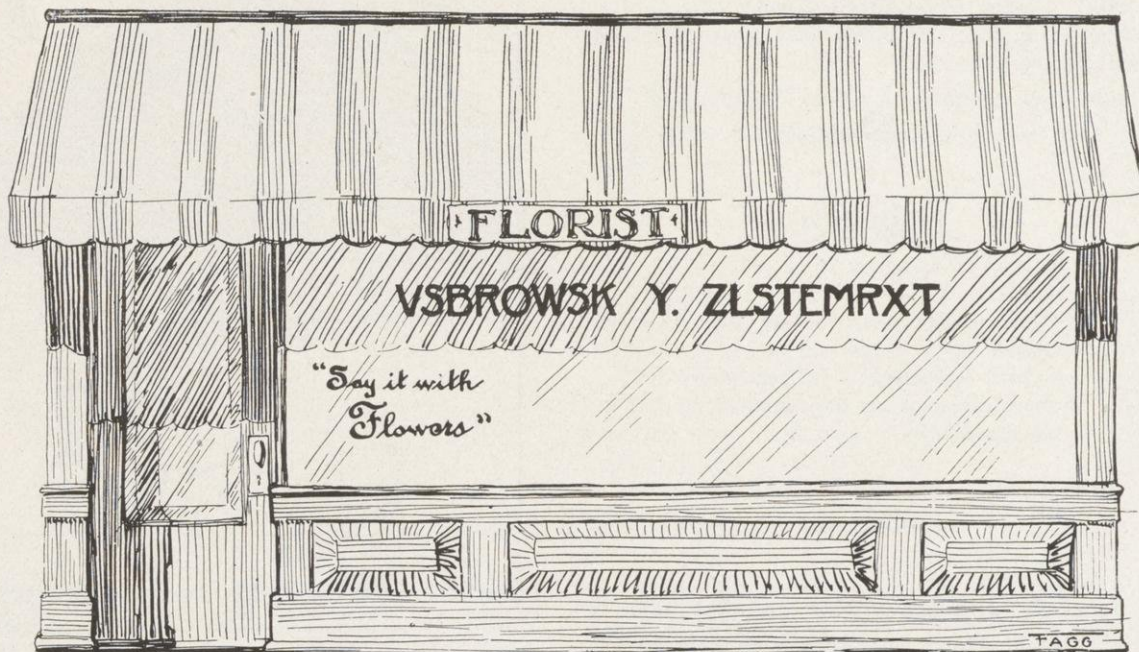 FLORIST
VSBROWSK Y. ZLSTEMRXT
"Say it with
Flowers"
TAGG